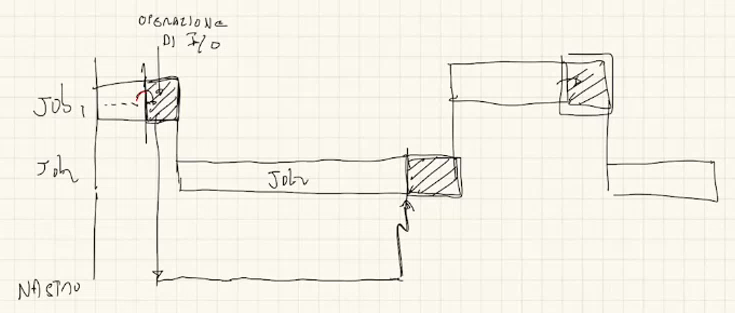 OPERAZIONE
DI I/O
Job 1
Job 2
Job 2
NASTRO